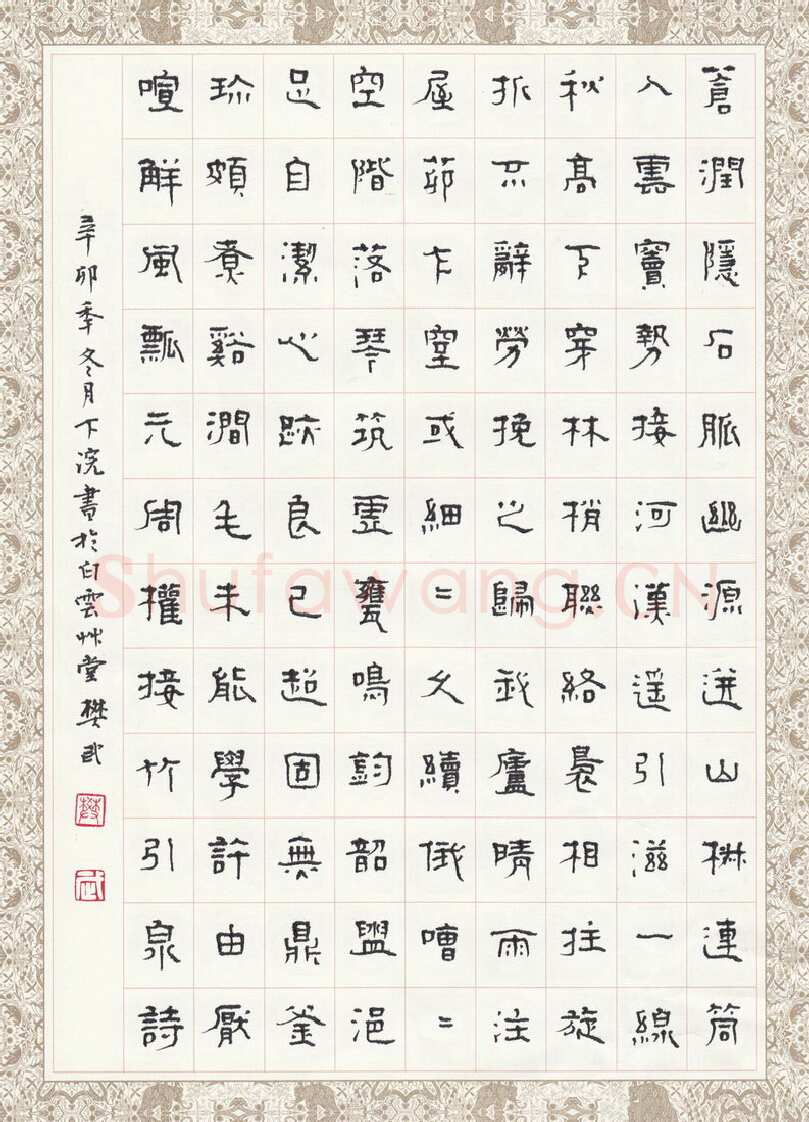 蒼潤隱石脈幽源迸山椒連筒
入雲竇勢接河漢遥引滋一線
秋高下穿林梢聯絡裊相拄旋
折不辭勞挽之歸我廬晴雨注
屋茆乍窒或細〻久續俄嘈〻
空階落琴筑虛甕鳴鈞韶盥浥
足自潔心跡良已超固無鼎釜
珍頗煮谿澗毛未能學許由厭
喧解風瓢元周權接竹引泉詩
辛卯季冬月下浣書於白雲艸堂樊武
樊
武
Shufawang.CN